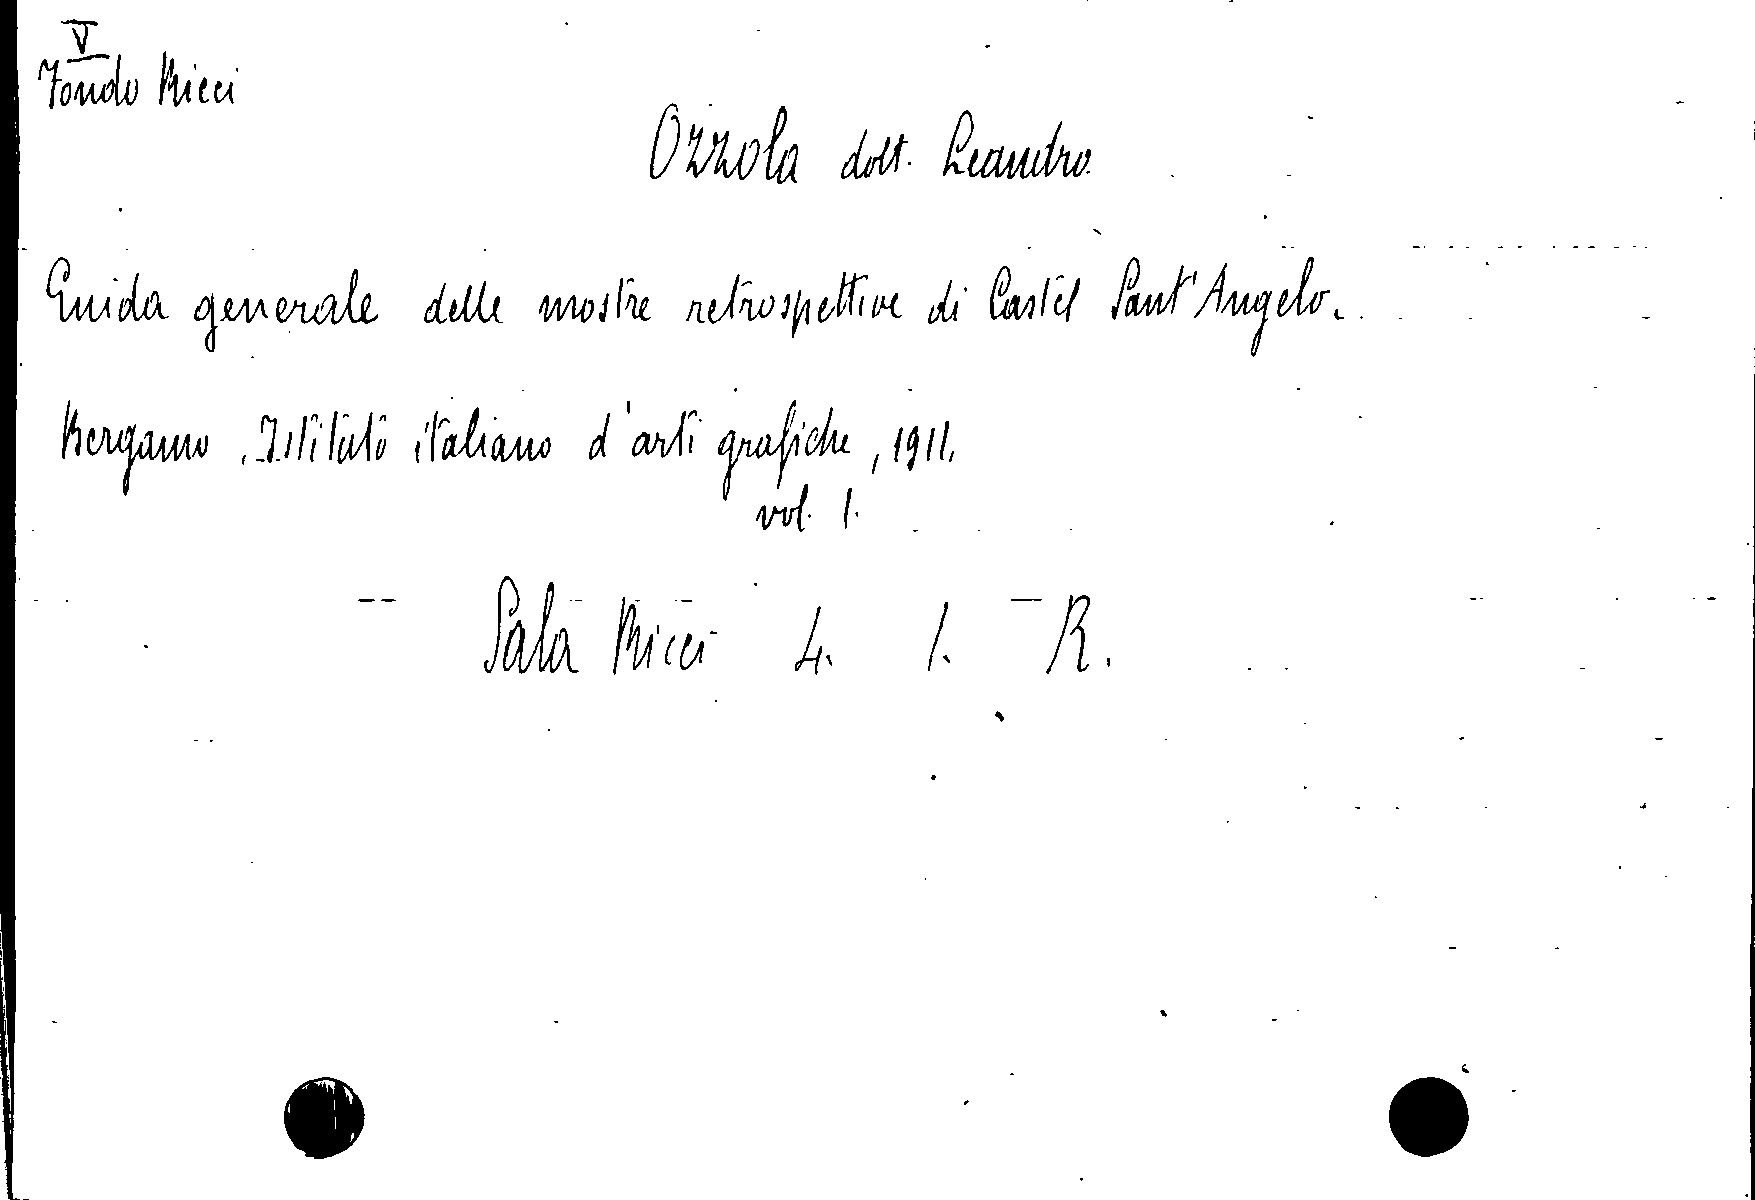 V
Fondo Ricci
Ozzola dott. Leandro.
Guida generale delle mostre retrospettive di Castel Sant'Angelo.
Bergamo, Istituto italiano d'arti grafiche, 1911.
vol. 1.
Sala Ricci 4. 1. R.